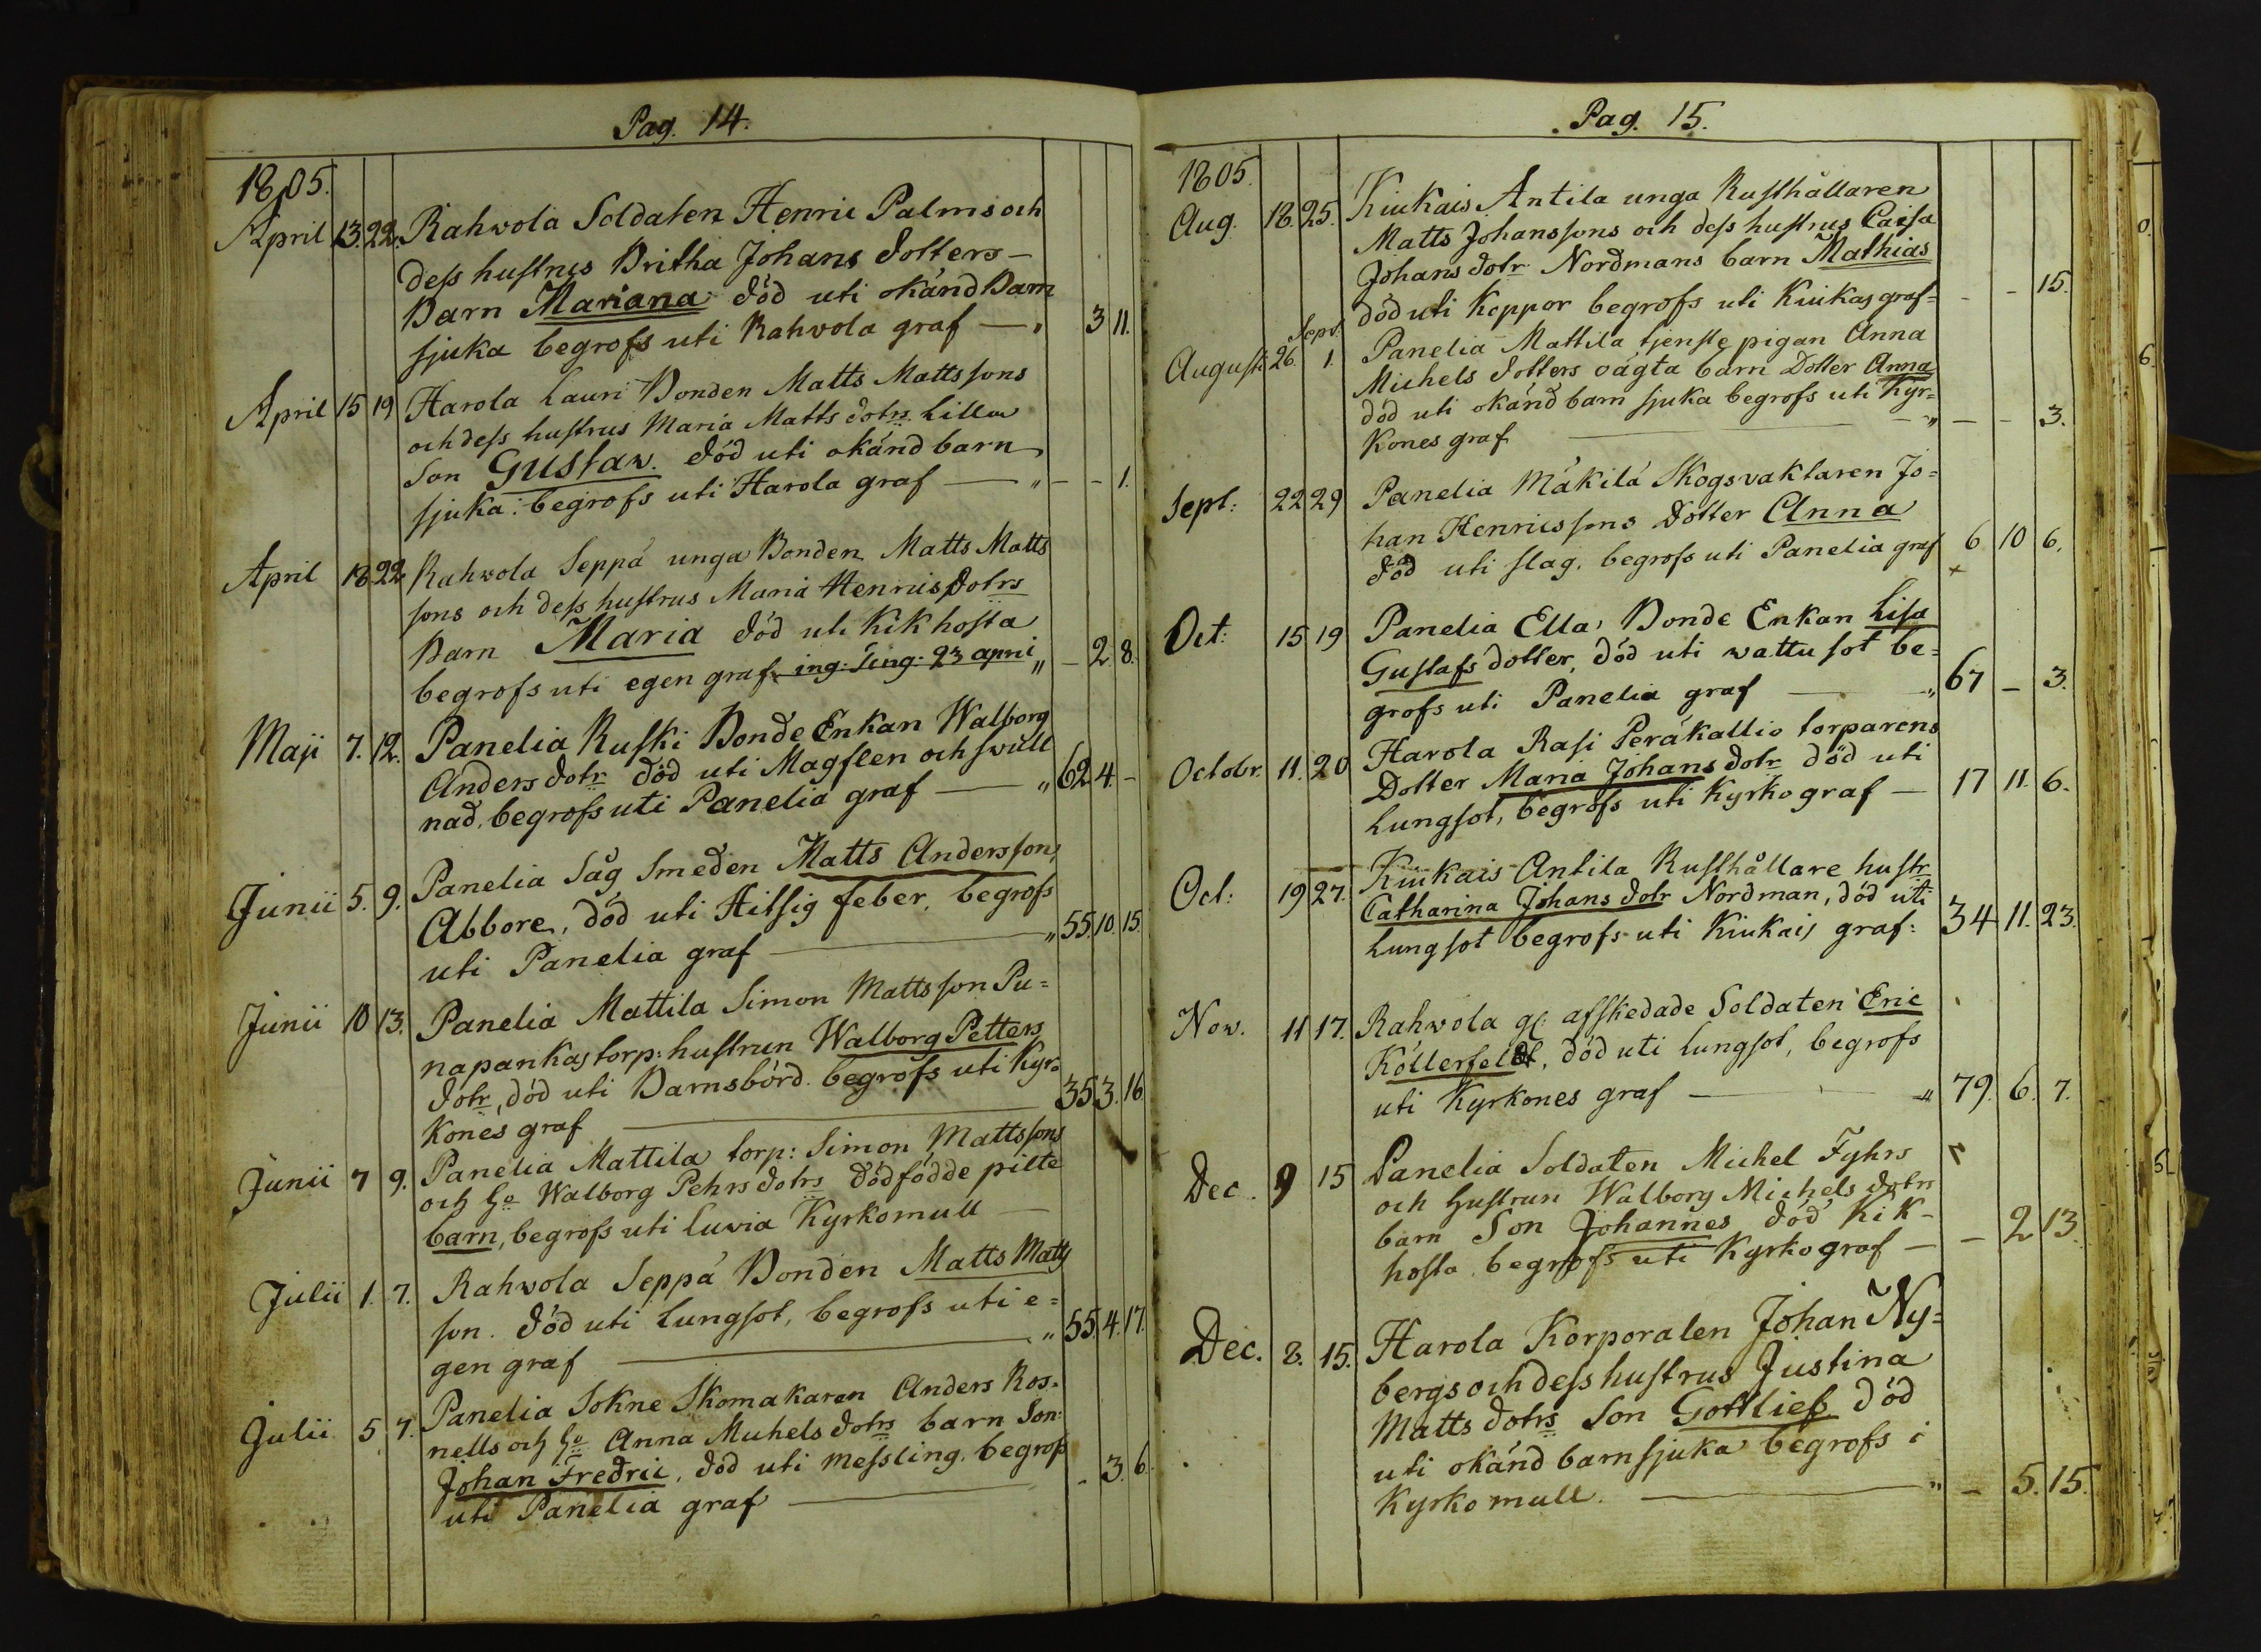 Pag. 14.
1805.
April 13. 22. Rahwola Soldaten Henric Palms och
dess hustrus Britha Johans dotters
Barn Mariana död uti okänd Barn
sjuka begrofs uti Rahwola graf — " 3 11.
April 15 19 Harola Lauri Bonden Matts Mattssons
och dess hustrus Maria Matts dotrs Lilla
Son Gustaw. död uti okänd barn
sjuka: begrofs uti Harola graf — " - - 1.
April 18 22 Rahwola Seppä unga Bonden Matts Matts
sons och dess hustrus Maria Henrics Dotrs
Barn Maria död uti Kikhosta
begrofs uti egen graf. " - 2 8.
Maji 7. 12. Panelia Ruski Bonde Enkan Walborg
Anders dotr död uti Magflen och swull
nad, begrofs uti Panelia graf — " 62 4. -
Junii 5. 9. Panelia Såg Smeden Matts Andersson
Abbore, död uti Hitsig feber, begrofs
uti Panelia graf — " 55. 10. 15.
Junii 10 13. Panelia Mattila Simon Mattsson Pu=
napankas torp: hustrun Walborg Petters
dotr, död uti Barnsbörd. begrofs uti Kyr=
kones graf — 35 3. 16
Junii 7 9. Panelia Mattila torp: Simon Mattssons
och Ho Walborg Pehrs dotrs dödfödde pilte
barn, begrofs uti Luvia Kyrkomull —
Julii 1. 7. Rahwola Seppä Bonden Matts Matts
son. död uti Lungsot, begrofs uti e=
gen graf — " 55. 4. 17.
Julii 5 7. Panelia Sokne Skomakaren Anders Ros=
nells och Ho Anna Michels dotrs barn Son:
Johan Fredric, död uti messling. begrofs
uti Panelia graf — - 3. 6.
Pag. 15.
1805.
Aug. 18. 25. Kiukais Antila unga Rusthållaren
Matts Johanssons och dess hustrus Caisa
Johans dotr Nordmans barn Mathias
död uti Koppor begrofs uti Kiukas graf= - - 15.
Sept.
Augusti 26. 1. Panelia Mattila tjenste pigan Anna
Michels dotters oägta barn Dotter Anna
död uti okänd barn sjuka begrofs uti Kyr=
kones graf — " - - 3.
Sept: 22 29 Panelia Mäkilä Skogsvaktaren Jo=
han Henricssons dotter Anna
död uti slag, begrofs uti Panelia graf 6 10 6.
Oct: 15 19 Panelia Ella, Bonde Enkan Lisa
Gustafs dotter, död uti wattusot be=
grofs uti Panelia graf — " 67 - 3.
Octobr. 11. 20 Harola Rasi Peräkallio torparens
Dotter Maria Johans dotr död uti
Lungsot, begrofs uti Kyrko graf — 17 11. 6.
Oct: 19 27. Kiukais Antila Rusthållare hustr
Catharina Johans dotr Nordman, död uti
Lungsot begrofs uti Kiukais graf: 34 11. 23.
Nov. 11 17. Rahwola gl: afskedade Soldaten Eric
Köllerfeldt, död uti Lungsot, begrofs
uti Kyrkones graf — " 79. 6. 7.
Dec. 9 15 Panelia Soldaten Michel Fyhrs
och Hustrun Walborg Michels dotrs
barn Son Johannes död Kik-
hosta begrofs uti Kyrko graf — - 2 13.
Dec. 8. 15. Harola Korporalen Johan Ny=
bergs och dess hustrus Justina
Matts dotrs Son Gottlieb död
uti okänd barnsjuka begrofs i
Kyrko mull. — " - 5. 15.